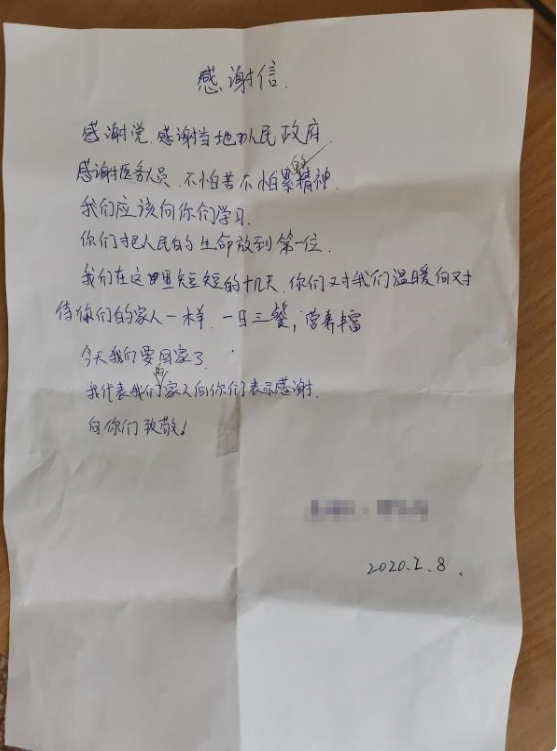 感谢信.
感谢党.感谢当地人民政府.
感谢医务人员.不怕苦不怕累的精神.
我们应该向你们学习.
你们把人民的生命放到第一位.
我们在这里短短的十几天.你们对我们温暖向对
待你们的家人一样.一日三餐,营养丰富
今天我们要回家了.
我代表我们的家人向你们表示感谢.
向你们致敬!
2020.2.8.